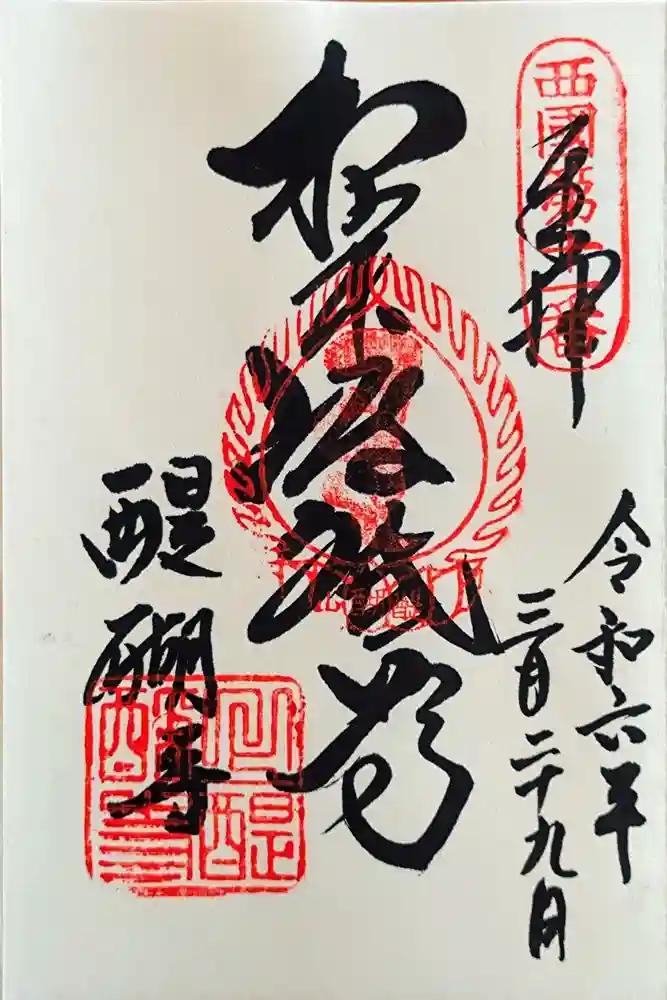 西國第十一番
奉拝
令和六年
三月二十九日
根本准胝尊
醍醐寺